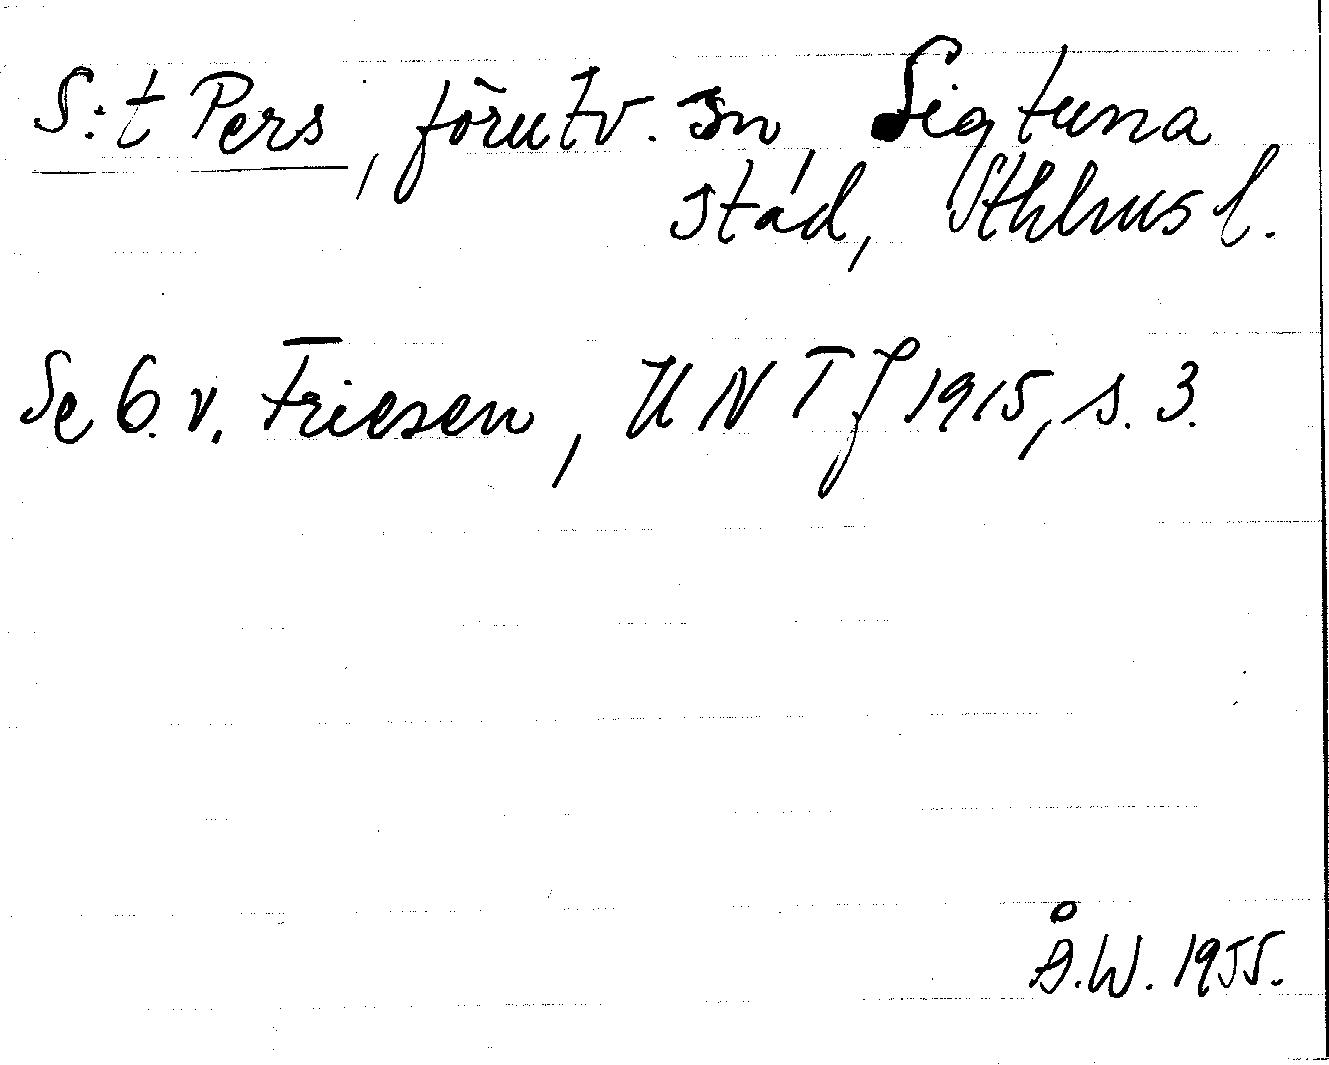 S:t Pers, förutv. sn, Sigtuna
stad, Sthlms l.
Se O. v. Friesen, UNTf 1915, s. 3.
Å.W. 1955.